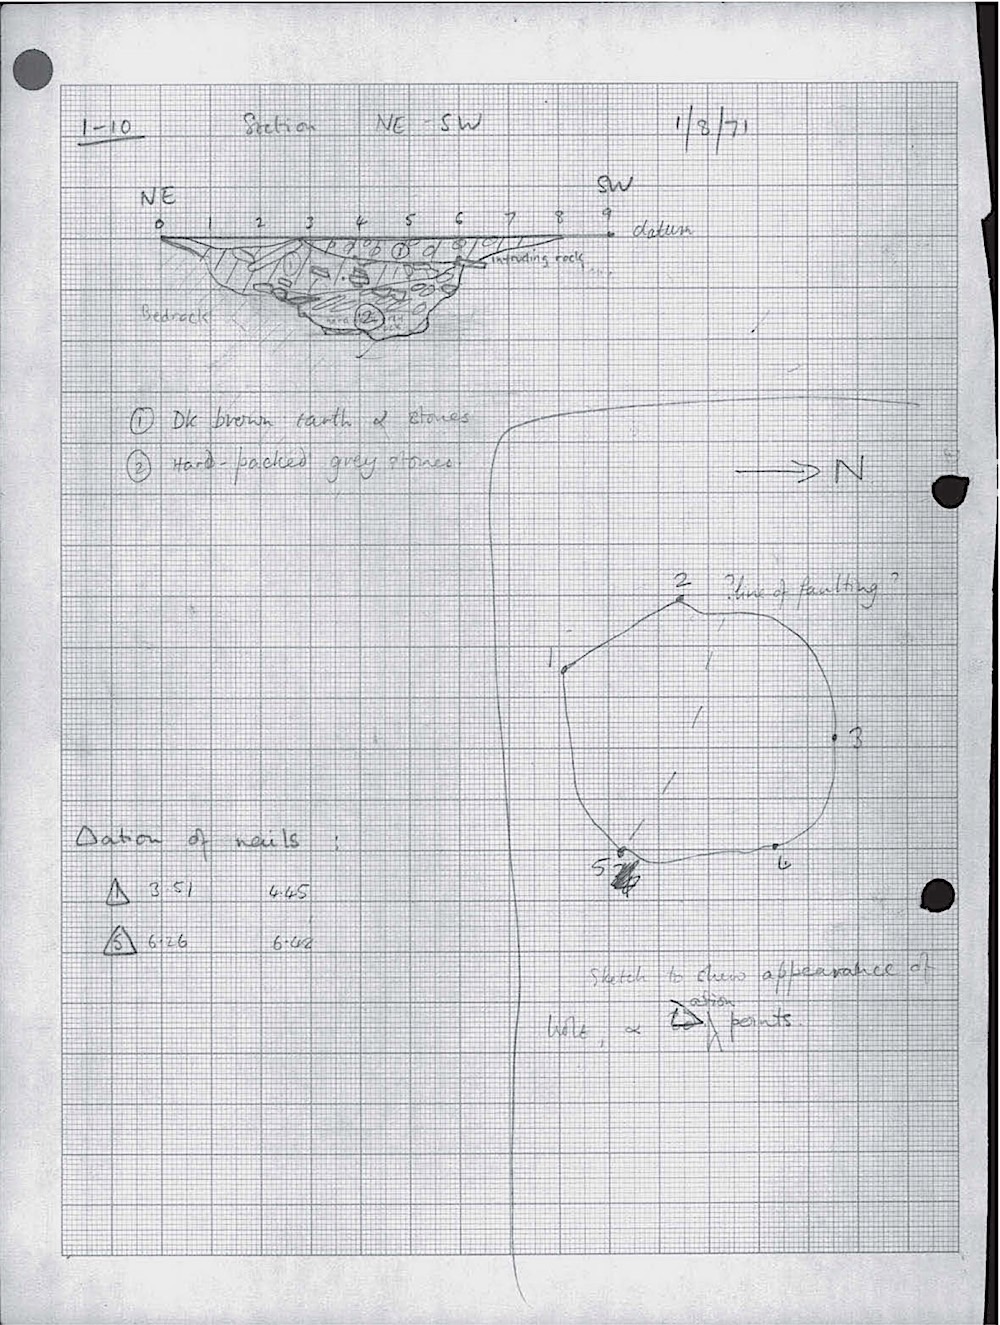 1-10 Section NE-SW 1/8/71
NE SW
0 1 2 3 4 5 6 7 8 9 datum
1
intruding rock
Bedrock
2
1 Dk brown earth & stones
2 Hard-packed grey stones.
N
2 ?line of faulting?
1
3
5 4
Δation of nails :
1 3.51 4.45
5 6.26 6.42
Sketch to show appearance of
hole, & Δation points.